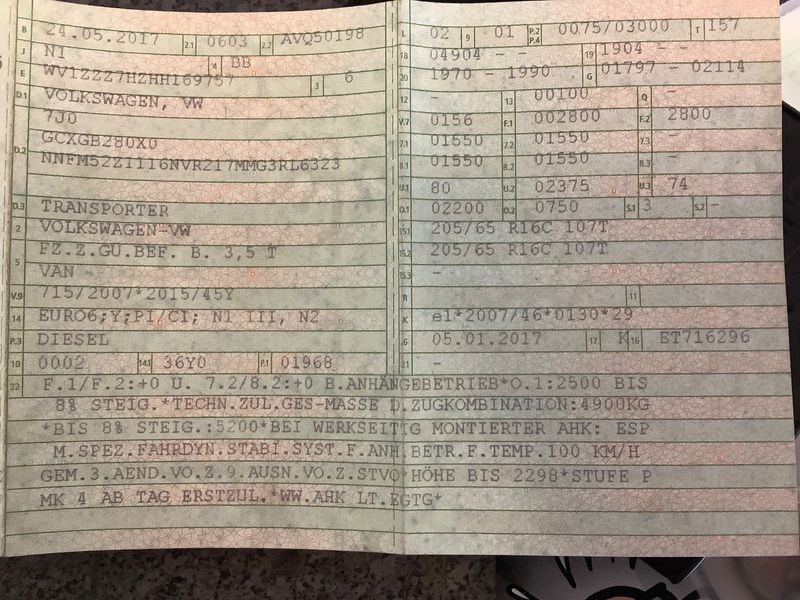 B 24.05.2017 2.1 0603 2.2 AVQ50198
J N1 4 BB
E WV1ZZZ7HZHH169757 3 6
D.1 VOLKSWAGEN, VW
7J0
D.2 GCXGB280X0
NNFM52Z1116NVR217MMG3RL6323
D.3 TRANSPORTER
2 VOLKSWAGEN-VW
5 FZ.Z.GÜ.BEF. B. 3,5 T
VAN
V.9 715/2007*2015/45Y
14 EURO6;Y;PI/CI; N1 III, N2
P.3 DIESEL
10 0002 14.1 36Y0 P.1 01968
L 02 9 01 P.2 P.4 0075/03000 T 157
18 04904 - - 19 1904 - -
20 1970 - 1990 G 01797 - 02114
12 - 13 00100 Q -
V.7 0156 F.1 002800 F.2 2800
7.1 01550 7.2 01550 7.3 -
8.1 01550 8.2 01550 8.3 -
U.1 80 U.2 02375 U.3 74
O.1 02200 O.2 0750 S.1 3 S.2 -
15.1 205/65 R16C 107T
15.2 205/65 R16C 107T
15.3 -
R 11
K e1*2007/46*0130*29
6 05.01.2017 17 K 16 ET716296
21 -
22 F.1/F.2:+0 U. 7.2/8.2:+0 B.ANHÄNGEBETRIEB*O.1:2500 BIS
8% STEIG.*TECHN.ZUL.GES-MASSE D.ZUGKOMBINATION:4900KG
*BIS 8% STEIG.:5200*BEI WERKSEITIG MONTIERTER AHK: ESP
M.SPEZ.FAHRDYN.STABI.SYST.F.ANH.BETR.F.TEMP.100 KM/H
GEM.3.AEND.VO.Z.9.AUSN.VO.Z.STVO*HÖHE BIS 2298*STUFE P
MK 4 AB TAG ERSTZUL.*WW.AHK LT.EGTG*